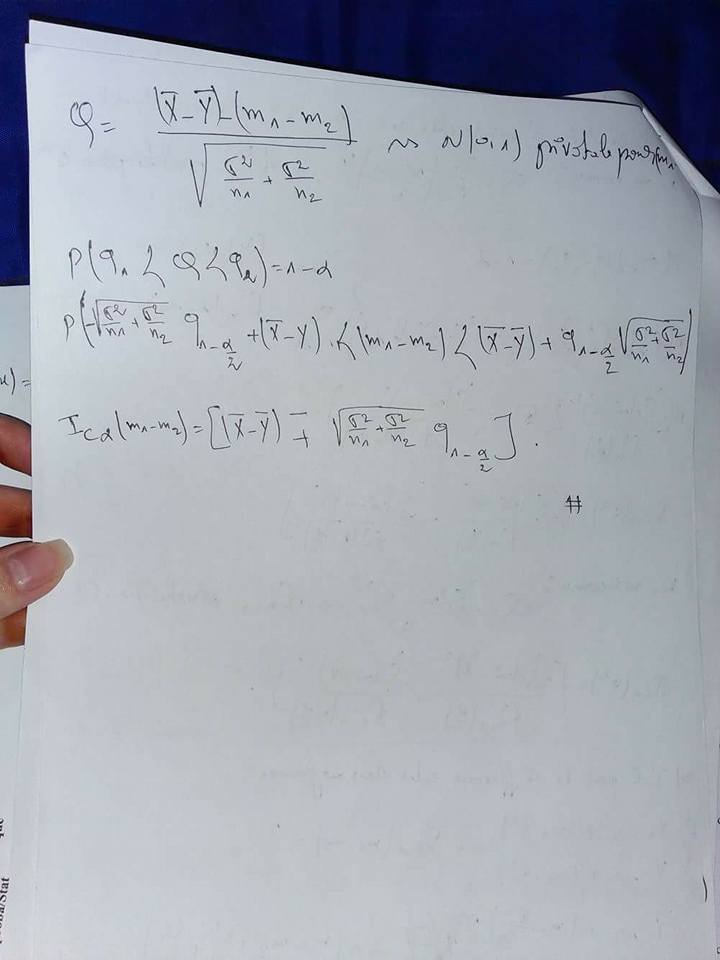 φ = ((X̄ - Ȳ) - (m₁ - m₂)) / √(σ²/n₁ + σ²/n₂) ~ N(0,1) pivotale pour (m₁
P(q₁ < φ < q₂) = 1 - α
P(-√(σ²/n₁ + σ²/n₂) q_{1-α/2} + (X̄ - Y) < (m₁ - m₂) < (X̄ - Ȳ) + q_{1-α/2} √(σ²/n₁ + σ²/n₂))
I_{Cα}(m₁ - m₂) = [(X̄ - Ȳ) ∓ √(σ²/n₁ + σ²/n₂) q_{1-α/2}].
#
) =